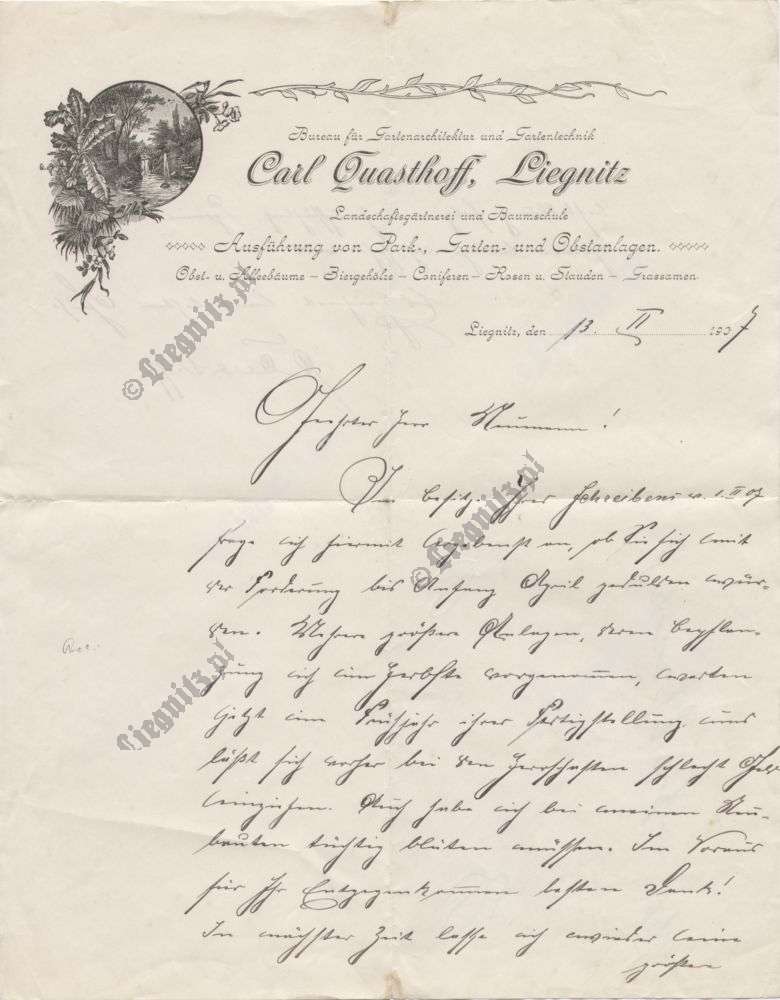 Bureau für Gartenarchitektur und Gartentechnik
Carl Quasthoff, Liegnitz
Landschaftsgärtnerei und Baumschule
Ausführung von Park-, Garten- und Obstanlagen.
Obst- u. Alleebäume – Ziergehölze – Coniferen – Rosen u. Stauden – Grassamen
Liegnitz, den 13. II 1907
Geehrter Herr Neumann!
Im Besitz Ihres Schreibens v. 1. II 07
frage ich hiermit ergebenst an, ob Sie sich mit
der Forderung bis Anfang April gedulden wür-
den. Mehrere größere Anlagen, deren Bepflan-
zung ich im Herbste vorgenommen, warten
jetzt im Frühjahr ihrer Fertigstellung und
läßt sich vorher bei den Herrschaften schlecht Geld
einziehen. Auch habe ich bei meinen Neu-
bauten tüchtig bluten müssen. Im Voraus
für Ihr Entgegenkommen besten Dank!
In nächster Zeit lasse ich wieder eine
größere
© Liegnitz.pl
© Liegnitz.pl
Liegnitz.pl